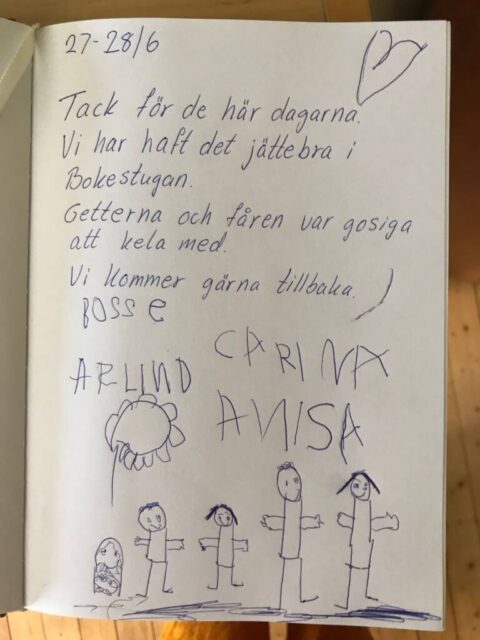 27-28/6
Tack för de här dagarna.
Vi har haft det jättebra i
Bokestugan.
Getterna och fåren var gosiga
att kela med.
Vi kommer gärna tillbaka. )
BOSSe
CARINA
ARLIND
ANISA